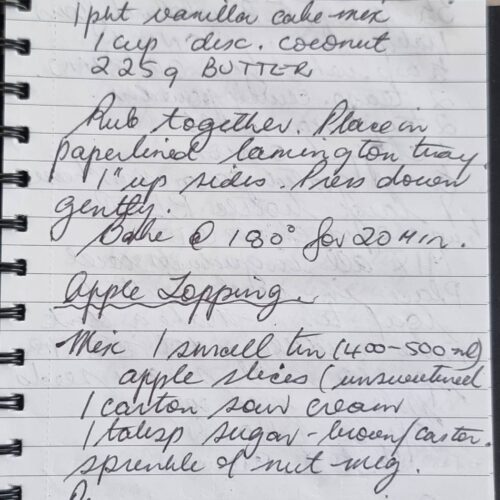 1 pkt vanilla cake mix
1 cup desc. coconut
225g BUTTER
Rub together. Place in
paperlined lamington tray.
1" up sides. Press down
gently.
Bake @ 180° for 20 Min.
Apple Topping.
Mix 1 small tin (400-500 ml)
apple slices (unsweetened
1 carton sour cream
1 tabsp sugar - brown/castor.
sprinkle of nut-meg.